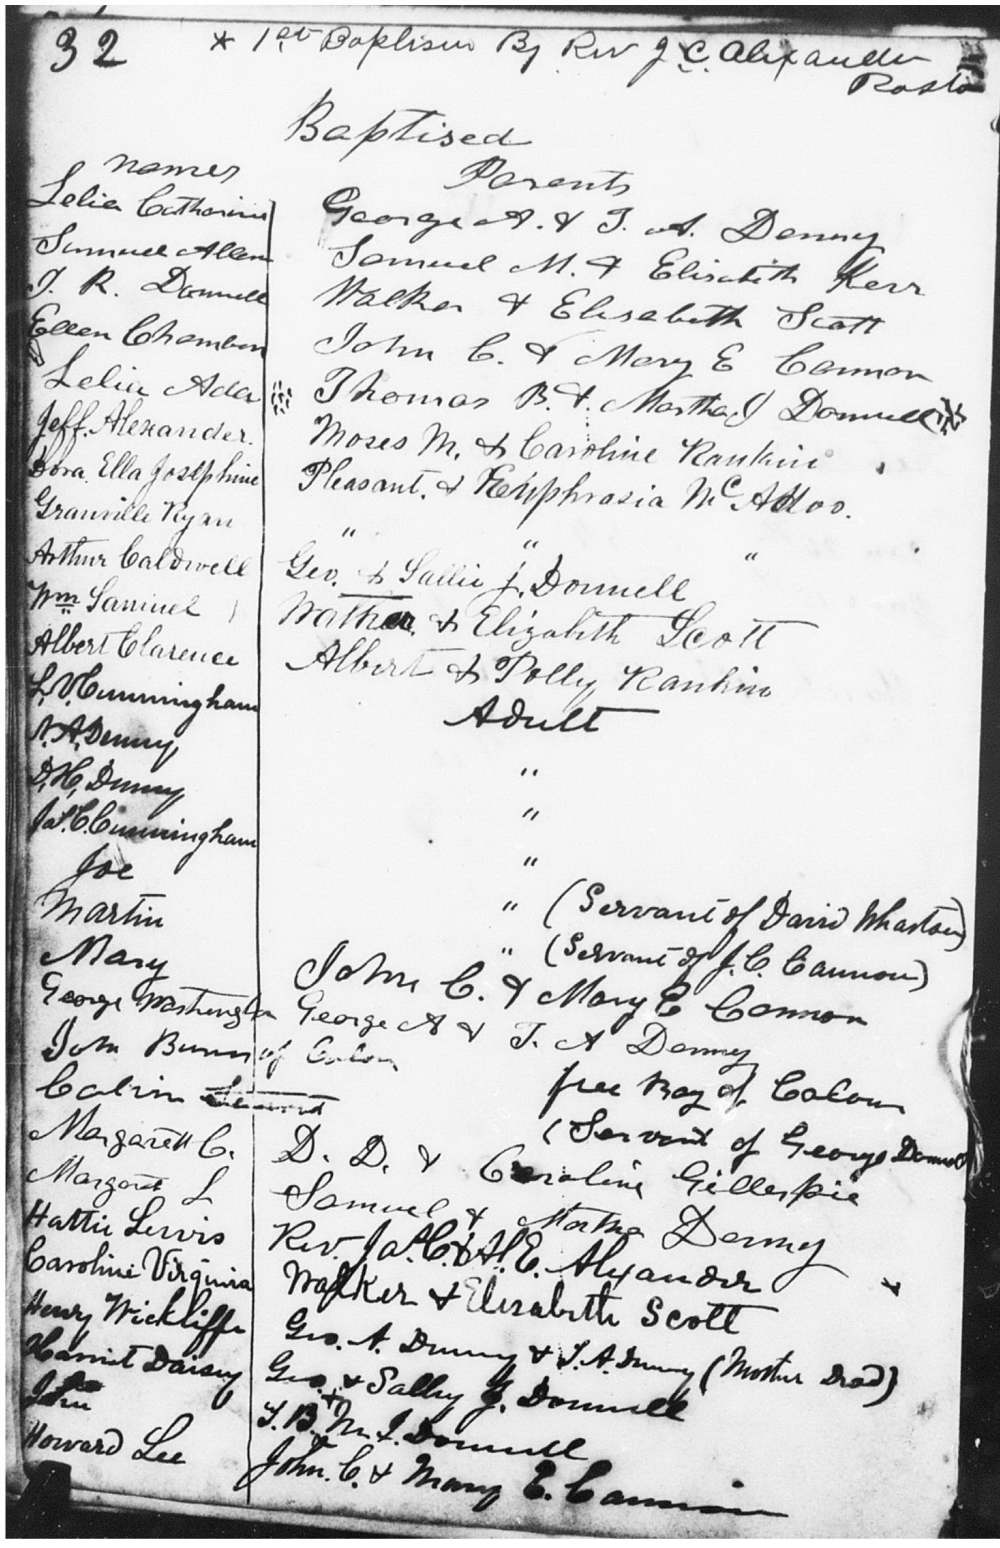 32
* 1st Baptism By Rev J. C. Alexander
Pastor
Baptised
names Parents
Lelia Catharine George A. & T. A. Denny
Samuel Allen Samuel M. & Elisabeth Kerr
J. R. Donnell Walker & Elisabeth Scott
Ellen Chambers John C. & Mary E Cannon
Lelia Ada Thomas B. & Martha J Donnell
Jeff. Alexander. Moses M. & Caroline Rankin
Dora Ella Josephine Pleasant. & Euphrasia McAdoo.
Granville Ryan " " "
Arthur Caldwell Geo. & Sallie J. Donnell
Wm Samuel Walker & Elizabeth Scott
Albert Clarence Albert & Polly Rankin
L. V. Cunningham Adult
N. A. Denny "
D. H. Denny "
Jas. C. Cunningham "
Joe " (Servant of David Wharton)
Martin " (Servant of J. C. Cannon)
Mary John C. & Mary E Cannon
George Washington George A & T. A Denny
John Bunn of Color free Boy of Colour
Calvin (Servant of George Donnell
Margarett C. D. D. & Caroline Gillespie
Margaret L Samuel & Martha Denny
Hattie Lewis Rev. Jas. C. & H. E. Alexander
Caroline Virginia Walker & Elisabeth Scott
Henry Wickliffe Geo. A. Denny & T. A. Denny (Mother Dead)
Harriet Daisey Geo. & Sally J. Donnell
John T. B. & M. J. Donnell
Howard Lee John. C. & Mary E. Cannon